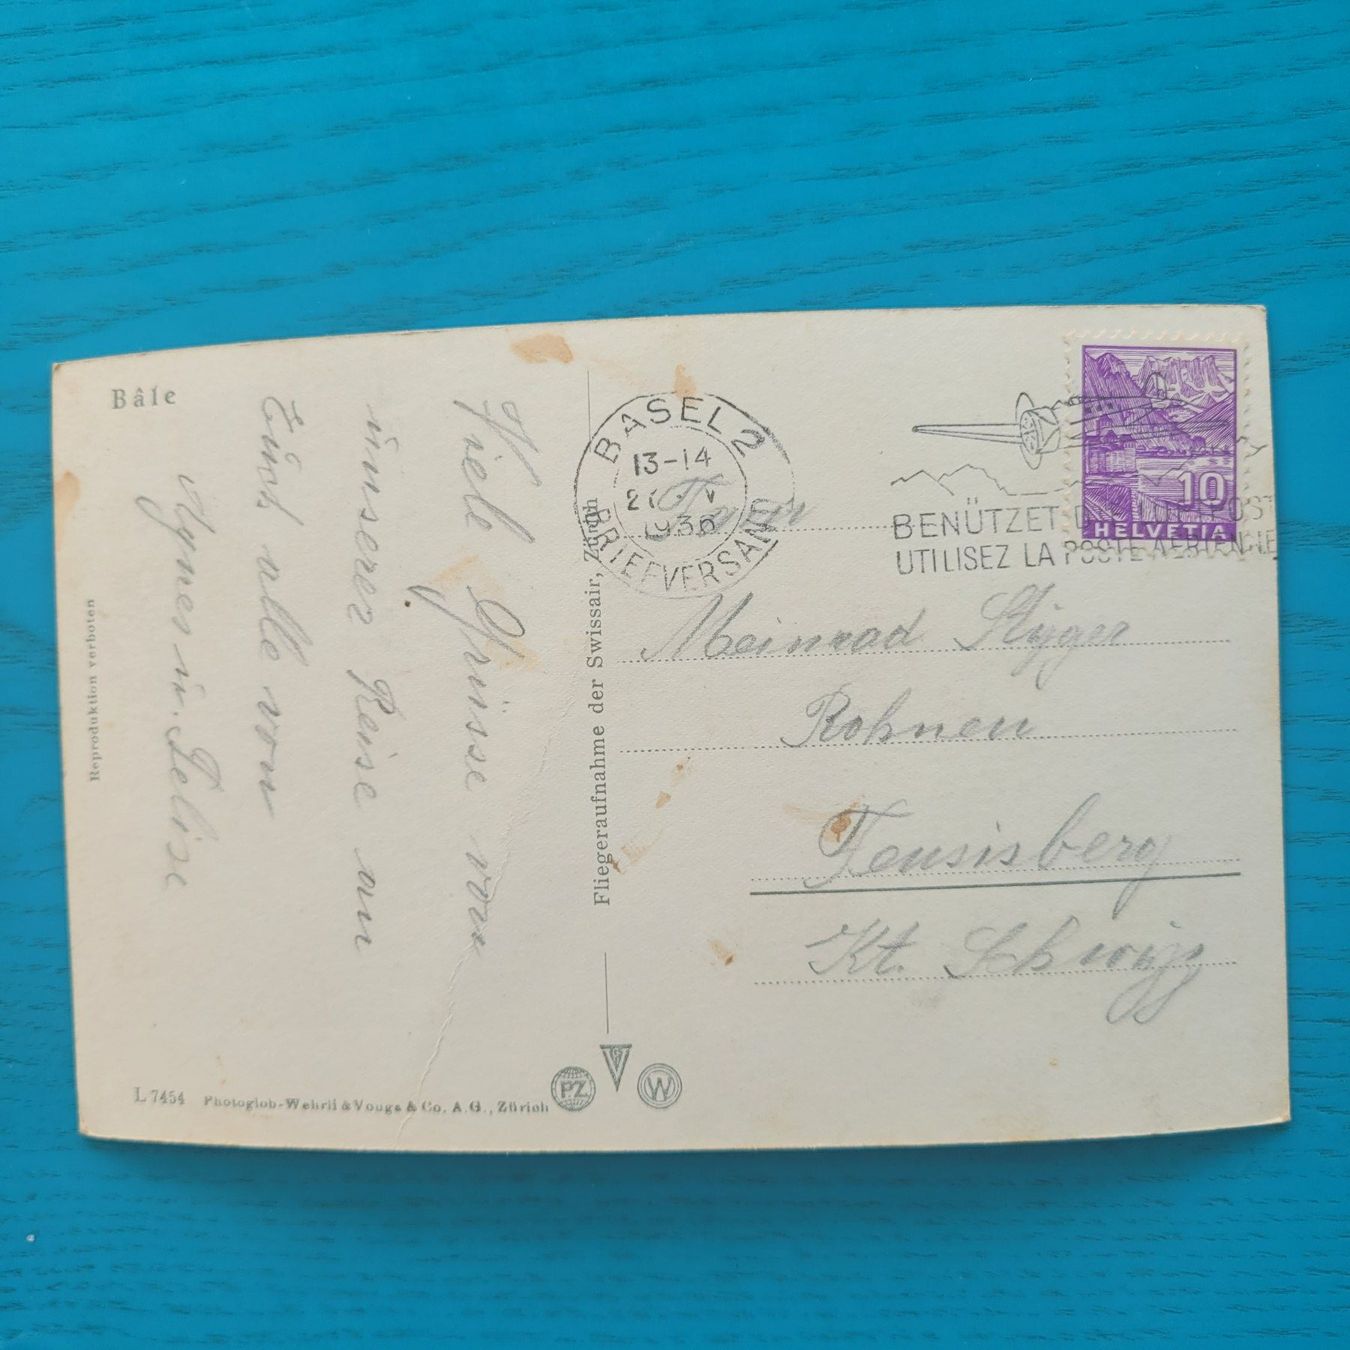 Bâle
Viele Grüsse von
unserer Reise an
Euch alle von
Agnes u. Felise
Reproduktion verboten
L 7454 Photoglob-Wehrli & Vouga & Co. A.G., Zürich
PZ
W
Fliegeraufnahme der Swissair, Zürich
BASEL 2
13-14
1936
BRIEFVERSAND
BENÜTZET
UTILISEZ LA POSTE AERIENNE
10
HELVETIA
Meinrad Stygger
Rohnen
Feusisberg
Kt. Schwyz